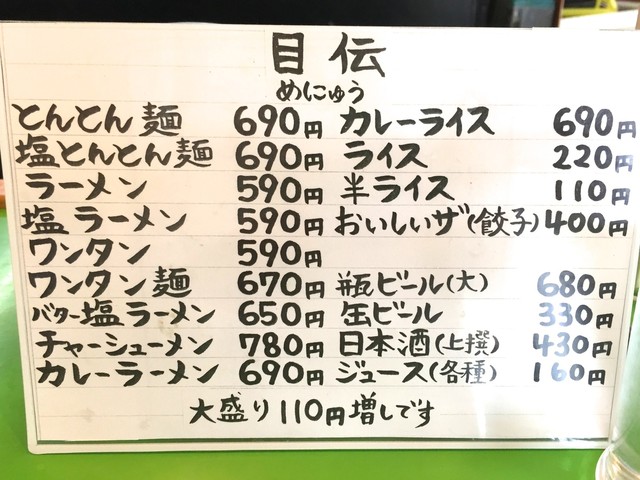 目伝
めにゅう
とんとん麺 690円 カレーライス 690円
塩とんとん麺 690円 ライス 220円
ラーメン 590円 半ライス 110円
塩ラーメン 590円 おいしいザ(餃子) 400円
ワンタン 590円
ワンタン麺 670円 瓶ビール(大) 680円
バター塩ラーメン 650円 缶ビール 330円
チャーシューメン 780円 日本酒(上撰) 430円
カレーラーメン 690円 ジュース(各種) 160円
大盛り110円増しです